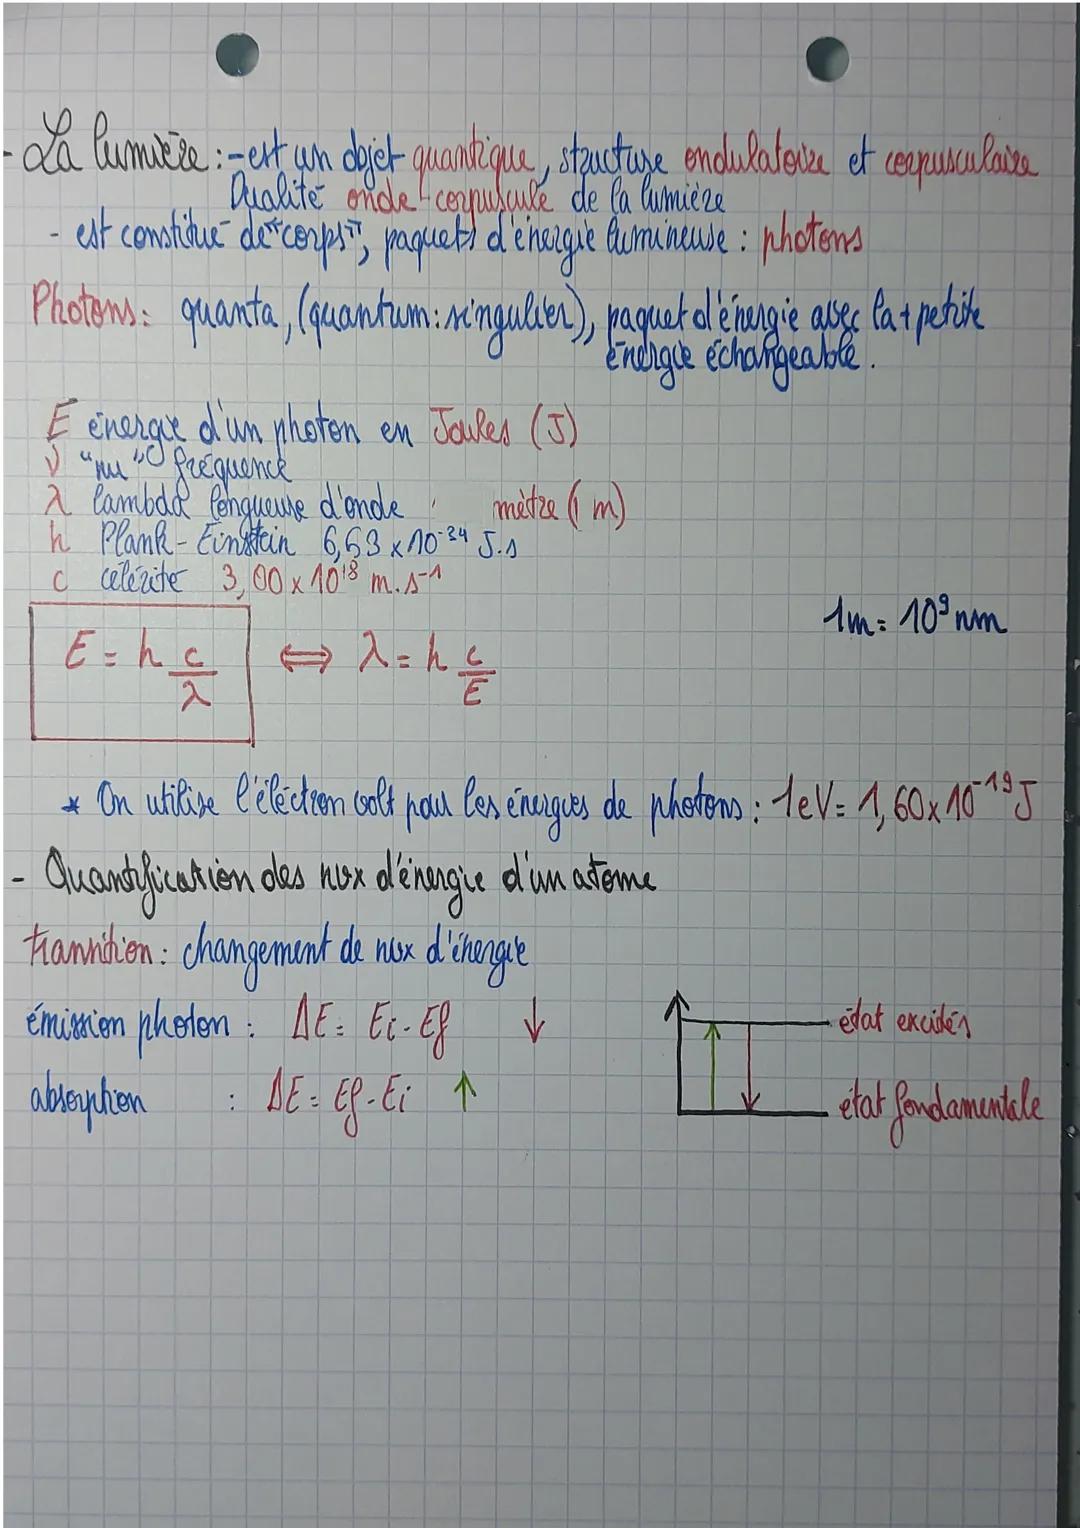 - La lumière : - est un objet quantique, structure ondulatoire et corpusculaire
Dualité onde-corpuscule de la lumière
- est constitué de "corps", paquets d'énergie lumineuse : photons
Photons : quanta, (quantum : singulier), paquet d'énergie avec la + petite
énergie échangeable.
E énergie d'un photon en Joules (J)
ν "nu" fréquence
λ lambda longueure d'onde mètre (1 m)
h Plank - Einstein 6,63 x 10⁻³⁴ J.s
c célérité 3,00 x 10¹⁸ m.s⁻¹
1m = 10⁹ nm
E = h c/λ ⇔ λ = h c/E
* On utilise l'éléctron volt pour les énergies de photons : 1eV = 1,60 x 10⁻¹⁹ J
- Quantification des nvx d'énergie d'un atome
transition : changement de nvx d'énergie
émission photon : ΔE = Ei - Ef ↓
état excités
absorption : ΔE = Ef - Ei ↑
état fondamentale